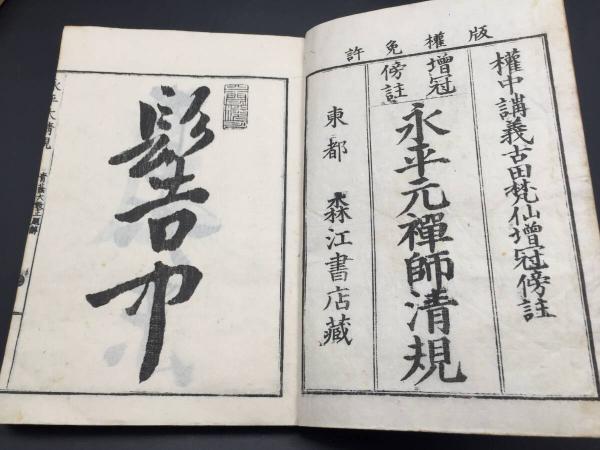 版權免許
權中講義古田梵仙增冠傍註
增冠
傍註
永平元禪師清規
東都 森江書店藏
髻中
永平大清規